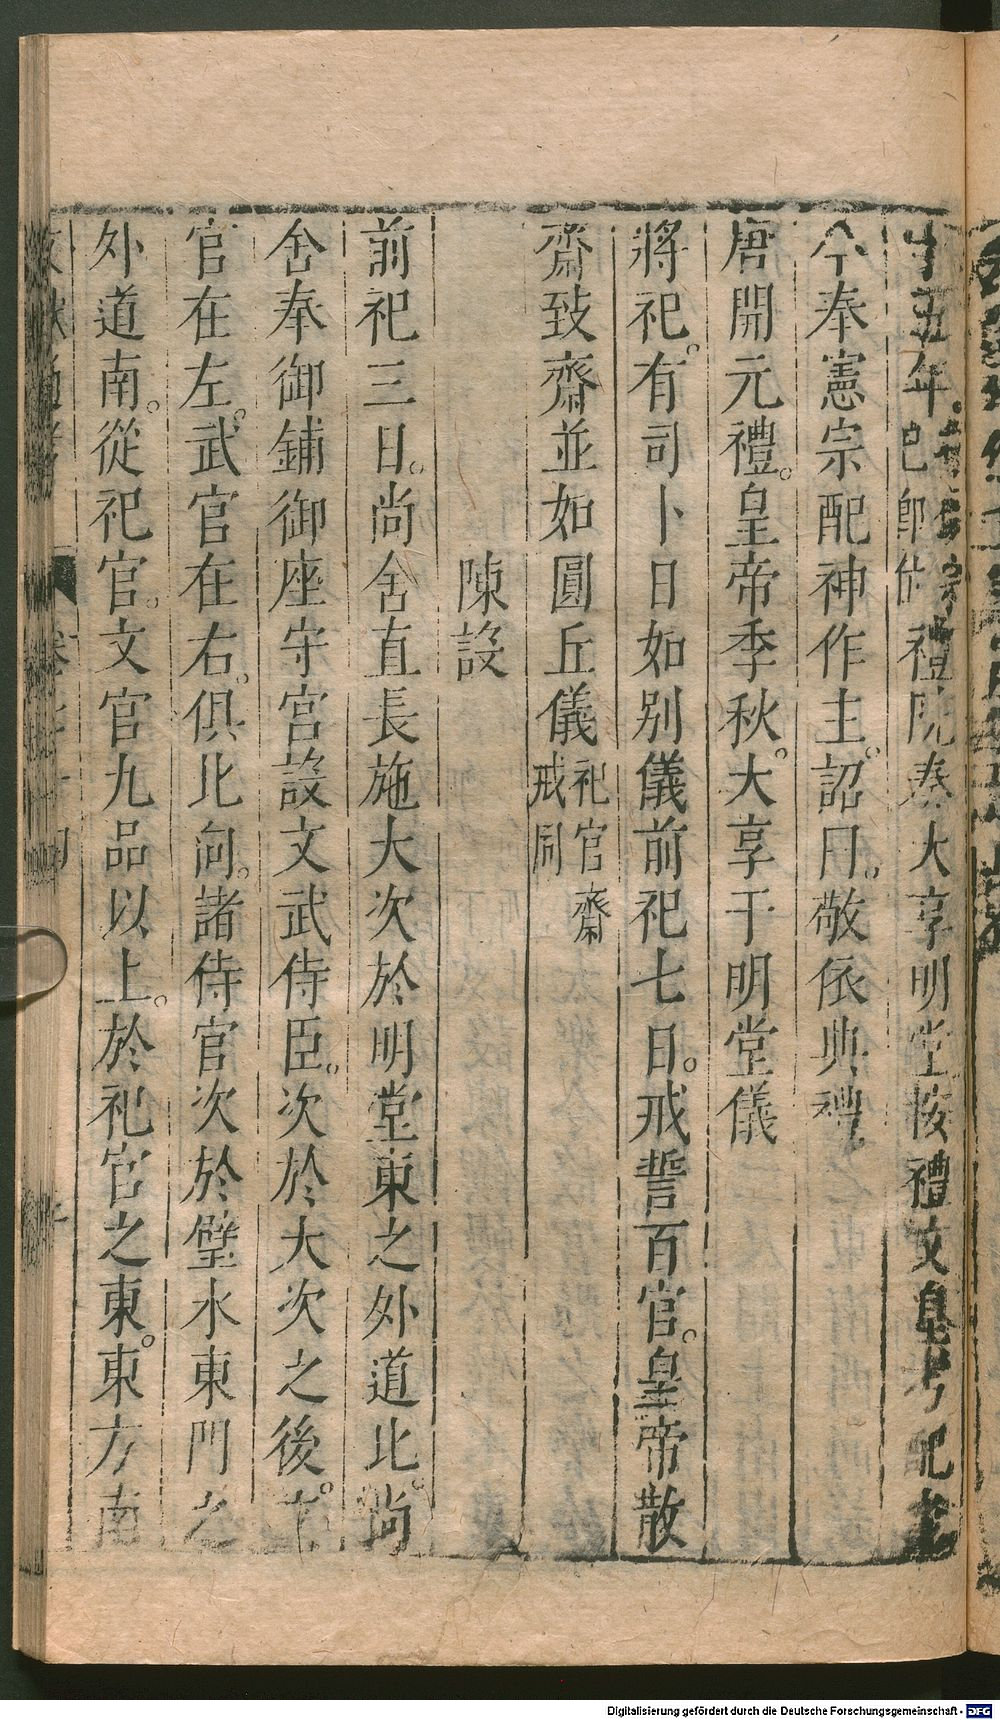 十五年禮院奏大享明堂按禮文皇考配
今奉憲宗配神作主詔曰敬依典禮
唐開元禮皇帝季秋大享于明堂儀
將祀有司卜日如别儀前祀七日戒誓百官皇帝散
齋致齋並如圓丘儀祀官齋戒同
陳設
前祀三日尚舍直長施大次於明堂東之外道北尚
舍奉御鋪御座守宮設文武侍臣次於大次之後文
官在左武官在右俱北向諸侍官次於璧水東門之
外道南從祀官文官九品以上於祀官之東東方南
Digitalisierung gefördert durch die Deutsche Forschungsgemeinschaft - DFG